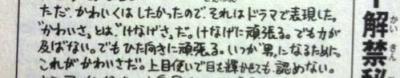 ただ、かわいくはしたかったので、それはドラマで表現した。
"かわいさ"とは"けなげさ"だ。けなげに頑張る。でも力が
及ばない。でもひた向きに頑張る。いつか"男"になるために。
これがかわいさだ。上目使いで目を輝かせても認めない。
解禁
かい きん